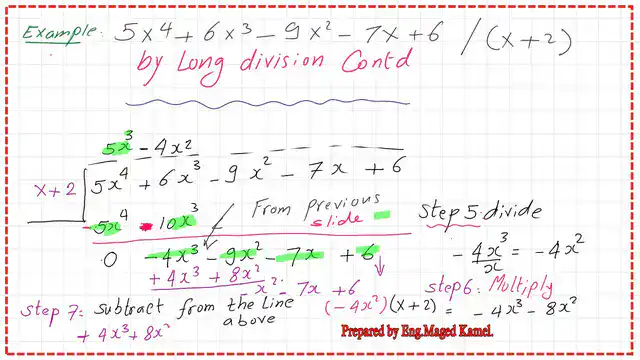 Example: 5x⁴ + 6x³ - 9x² - 7x + 6 / (x+2)
by Long division Contd
5x³ - 4x²
x+2 5x⁴ + 6x³ - 9x² - 7x + 6
-5x⁴ - 10x³
From previous
slide
0 -4x³ - 9x² - 7x + 6
+4x³ + 8x²
- x² - 7x + 6
Step 5 divide
-4x³/x = -4x²
step6: Multiply
(-4x²)(x+2) = -4x³ - 8x²
Step 7: subtract from the line
above
+4x³ + 8x²
Prepared by Eng.Maged Kamel.